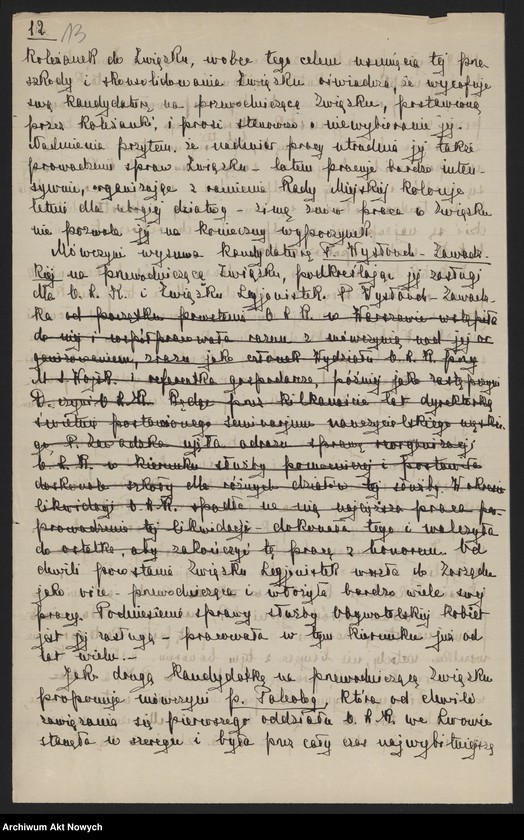 12 13
koleżanek do Związku, wobec tego celem usunięcia tej prze
szkody i skonsolidowania Związku oświadcza, że wycofuje
swą kandydaturę na przewodniczącą Związku, postawioną
przez koleżanki, i prosi stanowczo o niewybieranie jej.
Nadmienia przytem, że nadmiar pracy utrudnia jej także
prowadzenie spraw Związku - latem pracuje bardzo inten-
sywnie, organizując z ramienia Rady Miejskiej kolonje
letnie dla ubogiej dziatwy - zimą znów praca w Związku
nie pozwala jej na konieczny wypoczynek.
Mówczyni wysuwa kandydaturę P. Wysłouch-Zawadz-
kiej na przewodniczącą Związku, podkreślając jej zasługi
dla O.L.K. i Związku Legjonistek. P. Wysłouch-Zawadz-
ka od początku powstania O.L.K. w Warszawie wstąpiła
do niej i współpracowała razem z mówczynią nad jej or
ganizowaniem, zrazu jako członek Wydziału O.L.K. przy
M.S.Wojsk. i referentka gospodarcza, później jako
O.L.K. Będąc przez kilkanaście lat dyrektorką
świetnie postawionego seminarjum nauczycielskiego
go, P. Zawadzka ujęła odrazu sprawę reorganizacji
O.L.K. w kierunku służby pomocniczej i postawiła
doskonale szkoły dla różnych działów tej służby. W okresie
likwidacji O.L.K. spadła na nią najcięższa praca prze
prowadzenia tej likwidacji - dokonała tego i walczyła
do ostatka, aby zakończyć tę pracę z honorem. Od
chwili powstania Związku Legjonistek weszła do Zarządu
jako vice-przewodnicząca i włożyła bardzo wiele swej
pracy. Podniesienie sprawy służby obywatelskiej kobiet
jest jej zasługą - pracowała w tym kierunku już od
lat wielu. -
Jako drugą kandydatkę na przewodniczącą Związku
proponuje mówczyni p. Paleolog, która od chwili
zawiązania się pierwszego oddziału O.L.K. we Lwowie
stanęła w szeregu i była przez cały czas najwybitniejszą
Archiwum Akt Nowych